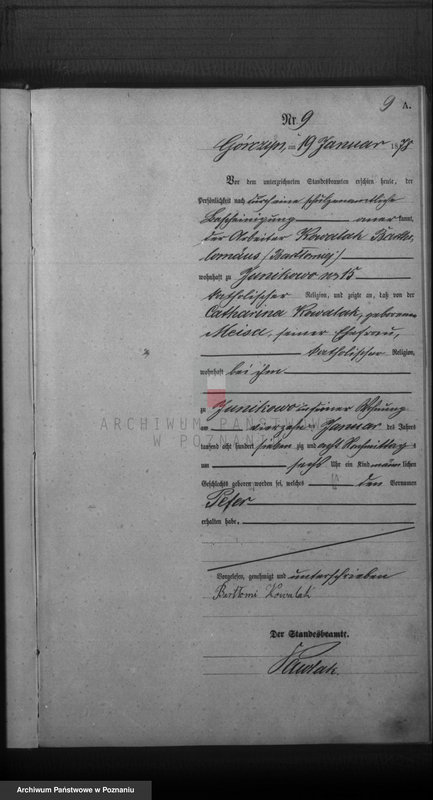 9 A.
Nr. 9
Górczyn, am 19 Januar 1878
Vor dem unterzeichneten Standesbeamten erschien heute, der
Persönlichkeit nach durch eine schulzenamtliche
Bescheinigung anerkannt,
der Arbeiter Kowalak Bartho-
lomäus /Bartłomiej/
wohnhaft zu Junikowo No 15
katholischer Religion, und zeigte an, daß von der
Catharina Kowalak, geborenen
seiner Ehefrau,
katholischer Religion,
wohnhaft bei ihm
zu Junikowo in seiner Wohnung
am vierzehn Januar des Jahres
tausend acht hundert siebenzig und acht Nachmittags
um sechs Uhr ein Kind männlichen
Geschlechts geboren worden sei, welches den Vornamen
Peter
erhalten habe.
Vorgelesen, genehmigt und unterschrieben
Bartłomi Kowalak
Der Standesbeamte.
ARCHIWUM PAŃSTWOWE
W POZNANIU
Archiwum Państwowe w Poznaniu